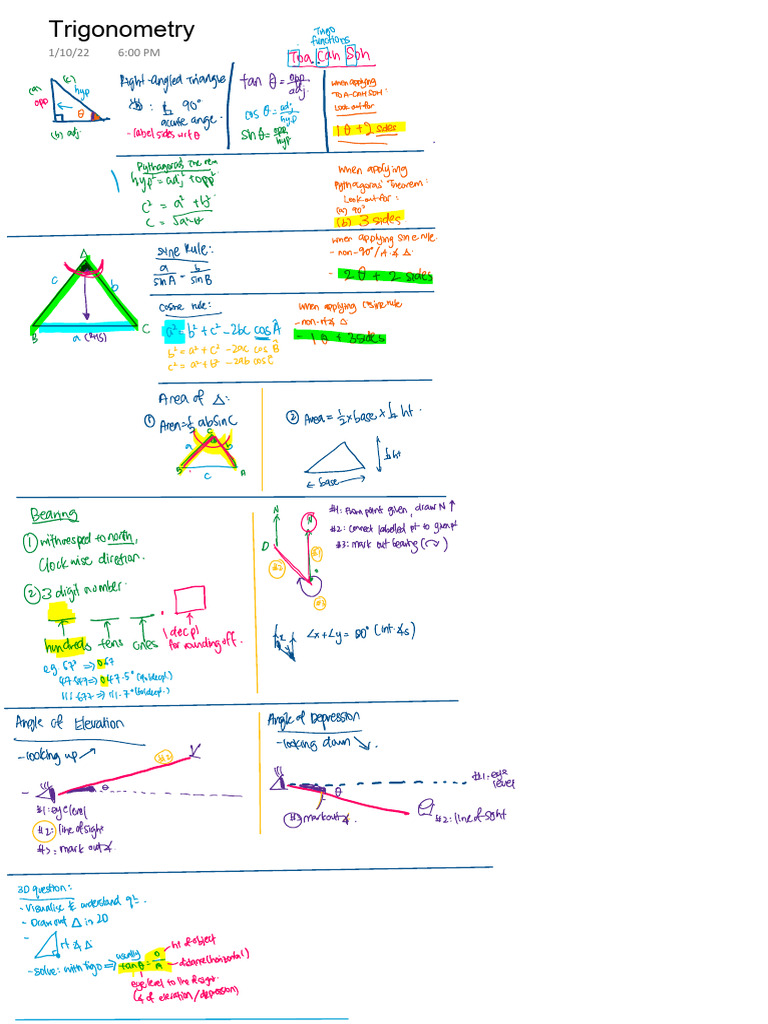 Trigonometry
1/10/22 6:00 PM
Trigo
functions
Toa Cah Soh
(a)
opp
(c)
hyp
θ
(b) adj
Right-angled Triangle
90°
acute angle.
- label sides w.r.t θ
tan θ = opp/adj
cos θ = adj/hyp
sin θ = opp/hyp
when applying
TOA-CAH SOH:
Look out for
1 θ + 2 sides
Pythagoras' Theorem
hyp² = adj² + opp²
c² = a² + b²
when applying
Pythagoras' Theorem:
Look out for:
(a) 90°
(b) 3 sides
A
c
b
B
a
C
Sine Rule:
a/sin A = b/sin B
when applying sine rule.
- non-90°/rt ∡ Δ.
- 2θ + 2 sides
Cosine rule:
a² = b² + c² - 2bc cos Â
b² = a² + c² - 2ac cos B̂
c² = a² + b² - 2ab cos Ĉ
when applying cosine rule
- non-rt∡ Δ
- 1θ + 3 sides
Area of Δ:
① Area = ½ ab sin C
C
a
b
B
c
A
② Area = ½ x base x ⊥ ht.
⊥ ht
base
Bearing
① with respect to north,
Clockwise direction.
② 3 digit number.
hundreds tens ones
1 dec pl
for rounding off.
eg 67° => 067
N
N
D
#1
#2
#3
#1: From point given, draw N ↑
#2: connect labelled pt to given pt
#3: mark out bearing
∠x + ∠y = 180° (int. ∡s)
Angle of Elevation
- looking up
#2
θ
#1: eye level
#2: line of sight
#3: mark out ∡
Angle of Depression
- looking down
#1: eye level
θ
#3 mark out ∡
#2: line of sight
3D question:
- Visualise & understand qⁿ.
- Draw out Δ in 2D
- rt ∡ Δ
- solve: with trigo => usually tanθ = O/A
ht of object
distance (horizontal)
eye level to line of sight
(∡ of elevation/depression)